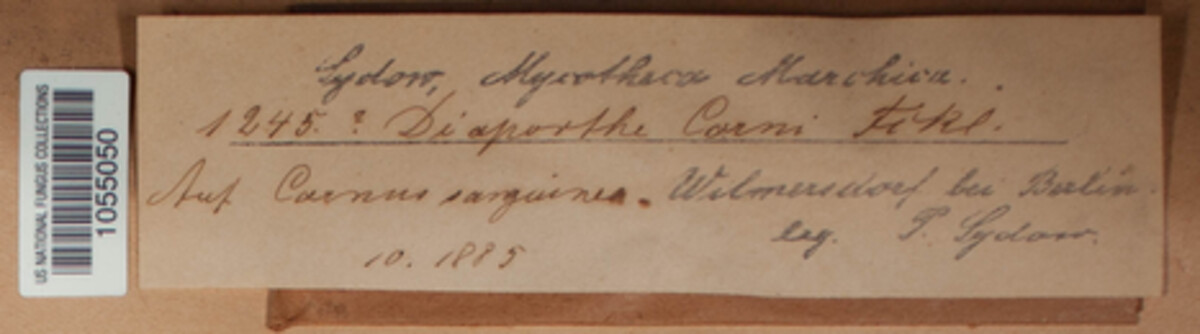 US NATIONAL FUNGUS COLLECTIONS
1055050
Sydow, Mycotheca Marchica.
1245. ? Diaporthe Corni Fckl.
Auf Cornus sanguinea. Wilmersdorf bei Berlin.
leg. P. Sydow.
10. 1885